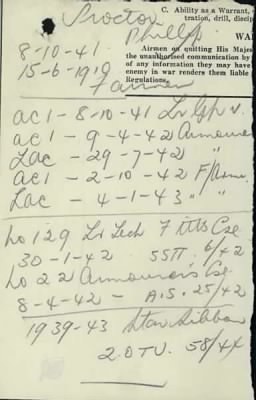 Proctor
Phillip
C. Ability as a Warrant,
tration, drill, discip
WA
Airmen on quitting His Majes
the unauthorised communication by
of any information they may have
enemy in war renders them liable
Regulations.
8-10-41
15-6-1919
Farmer
ac1 - 8-10-41
ac1 - 9-4-42 Armourer
Lac - 29-7-42 "
ac1 - 2-10-42 F/Arm.
Lac - 4-1-43 " "
No 129 Fitts Cse
30-1-42 SSTT 6/42
No 22 Armourers Cse
8-4-42 - A.S. 25/42
1939-43 Star Ribbon
2.O.T.U. 58/44